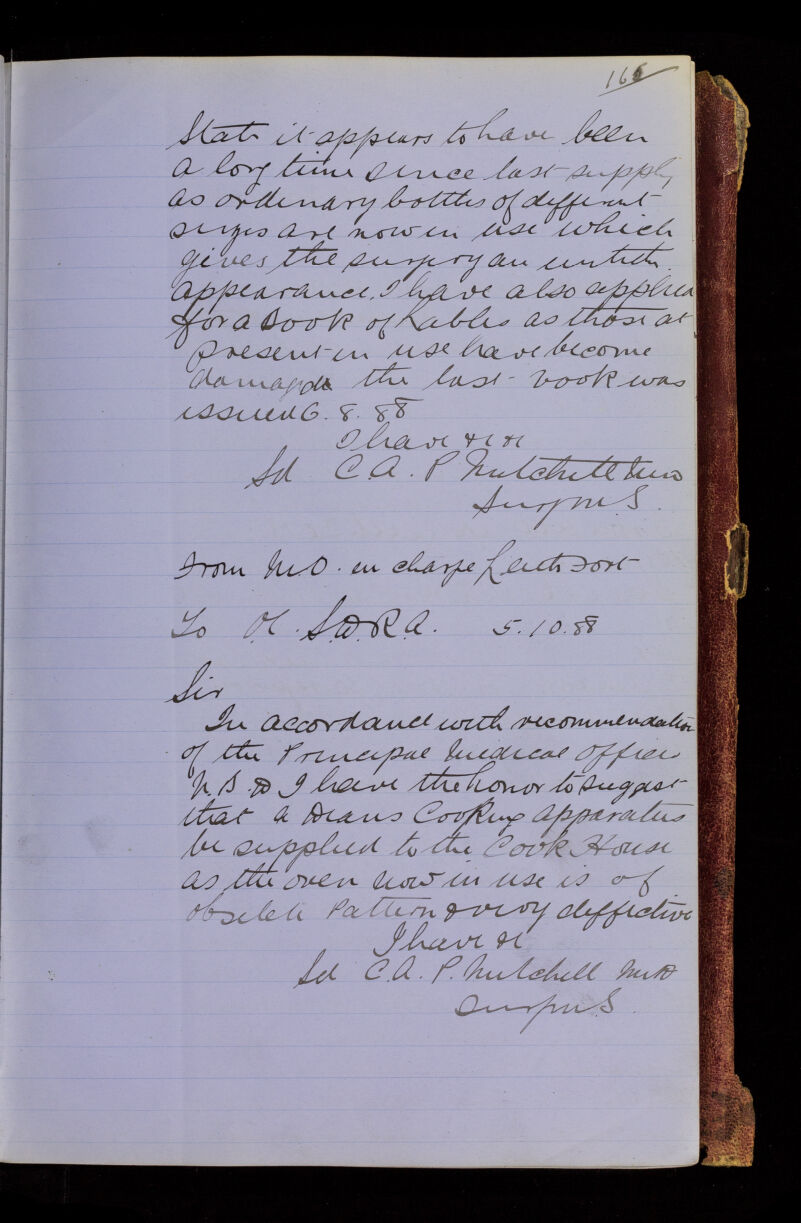 165
State it appears to have been
a long time since last supply
as ordinary bottles of different
sizes are now in use which
gives the surgery an untidy
appearance. I have also applied
for a Book of Lables as those at
present in use have become
damaged the last book was
issued 6. 8. 88
I have &c &c
Sd C. A. P. Mitchell
Surgn M. S.
From M.O. in charge Leith Fort
To O.C. S.D.R.A. 5.10.88
Sir
In accordance with recommendation
of the Principal Medical Officer
N.B.D I have the honor to suggest
that a Deans Cooking apparatus
be supplied to the Cook House
as the oven now in use is of
obselete Pattern & very deffective
I have &c
Sd C.A. P. Mitchell MD
Surgn M.S.